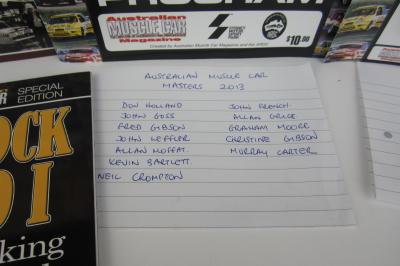 PROGRAM
Australian
MUSCLE CAR
Magazine
SYDNEY
MOTOR SPORT
$10.00
Created by Australian Muscle Car Magazine and the ARDC
SPECIAL
EDITION
OCK
D I
king
AUSTRALIAN MUSCLE CAR
MASTERS 2013
DON HOLLAND JOHN FRENCH
JOHN GOSS ALLAN GRICE
FRED GIBSON GRAHAM MOORE
JOHN LEFFLER CHRISTINE GIBSON
ALLAN MOFFAT. MURRAY CARTER
KEVIN BARTLETT.
NEIL CROMPTON